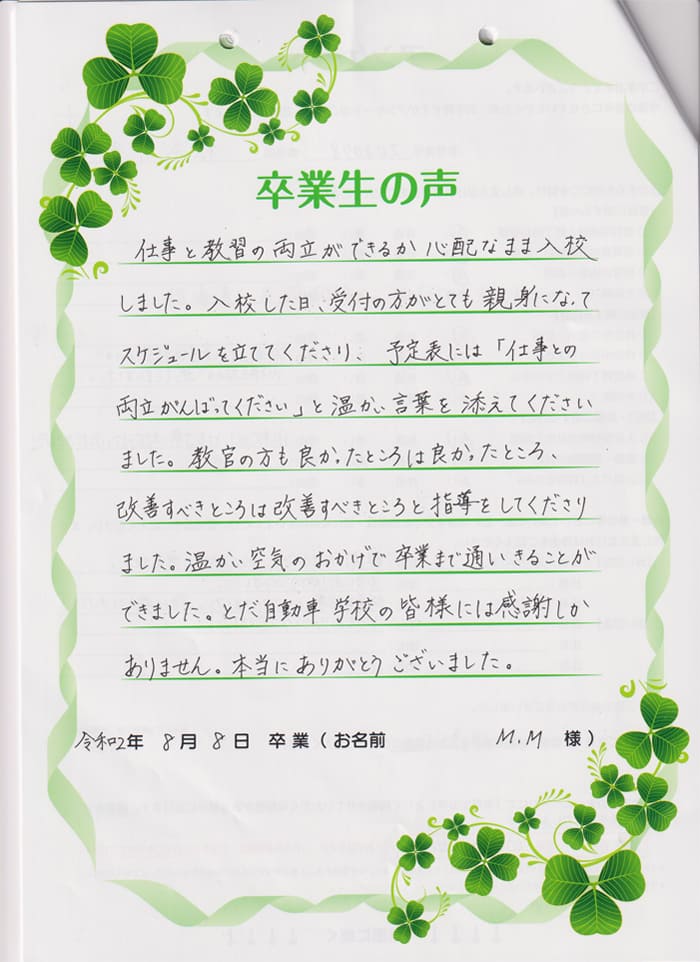 卒業生の声
仕事と教習の両立ができるか心配なまま入校
しました。入校した日、受付の方がとても親身になって
スケジュールを立ててくださり、予定表には「仕事との
両立がんばってください」と温かい言葉を添えてください
ました。教官の方も良かったところは良かったところ、
改善すべきところは改善すべきところと指導をしてくださり
ました。温かい空気のおかげで卒業まで通いきることが
できました。とだ自動車学校の皆様には感謝しか
ありません。本当にありがとうございました。
令和2年 8月 8日 卒業(お名前 M.M 様)